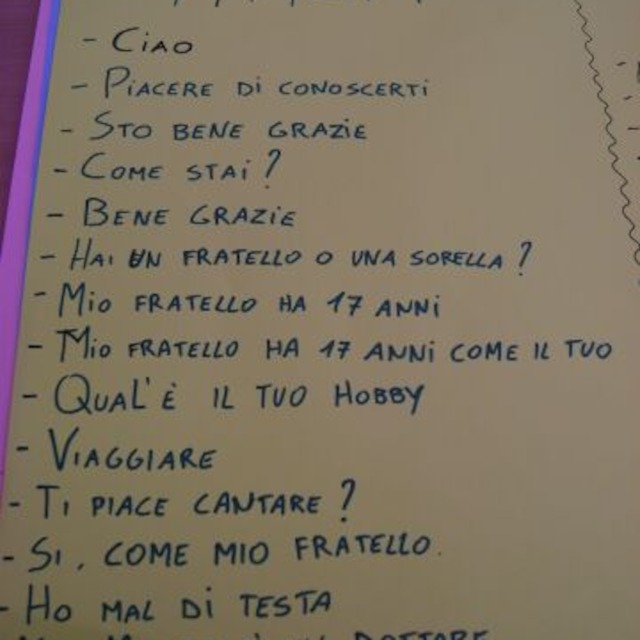 - CIAO
- PIACERE DI CONOSCERTI
- STO BENE GRAZIE
- COME STAI?
- BENE GRAZIE
- HAI UN FRATELLO O UNA SORELLA?
- MIO FRATELLO HA 17 ANNI
- MIO FRATELLO HA 17 ANNI COME IL TUO
- QUAL'È IL TUO HOBBY
- VIAGGIARE
- TI PIACE CANTARE?
- SI, COME MIO FRATELLO.
- HO MAL DI TESTA
DOTTORE